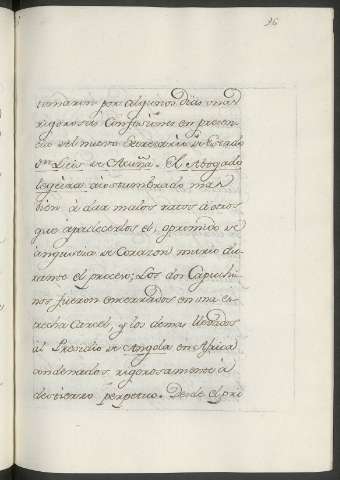 96
tomaron por algunos dias unas
rigorosas Confesiones en presen-
cia del nuevo Secretario de Estado
Dn. Luis de Acuña. El Abogado
acostumbrado mas
bien à dar malos ratos à otros
que apadecerlos el, oprimido de
angustia de Corazon murio du-
rante el proceso; Los dos Capuchi
nos fueron encerrados en una es-
trecha Carcel, y los demas llevados
al Presidio de Angola en Africa
condenados rigorosamente à
destierro perpetuo. Desde el pri